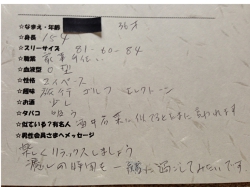 ☆なまえ・年齢 36才
☆身長 154
☆スリーサイズ 81-60-84
☆職業 家事手伝い
☆血液型 O型
☆性格 マイペース
☆趣味 旅行 ゴルフ エレクトーン
☆お酒 少し
☆タバコ 吸う
☆似ている?有名人 酒井若菜に似てるとたまに言われます
☆男性会員さまへメッセージ
楽しくリラックスしましょう
癒しの時間を一緒に過ごしてみたいです